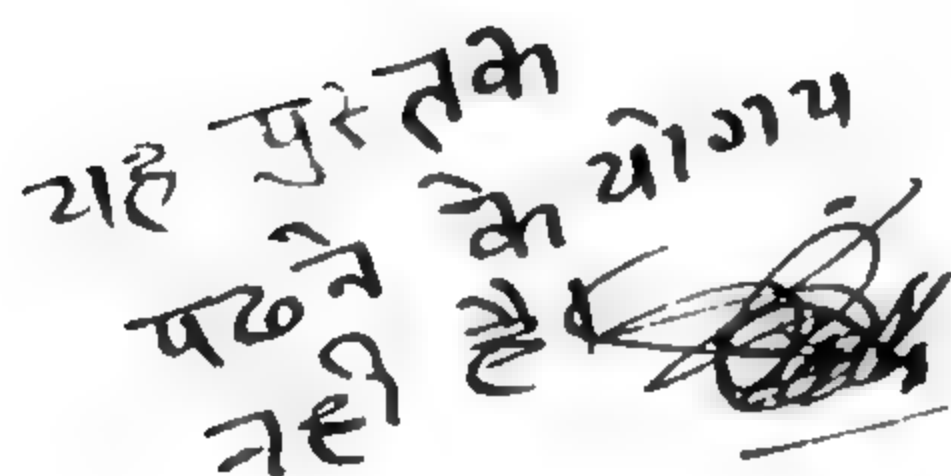 यह पुस्तक
पढने के योग्य
नही है